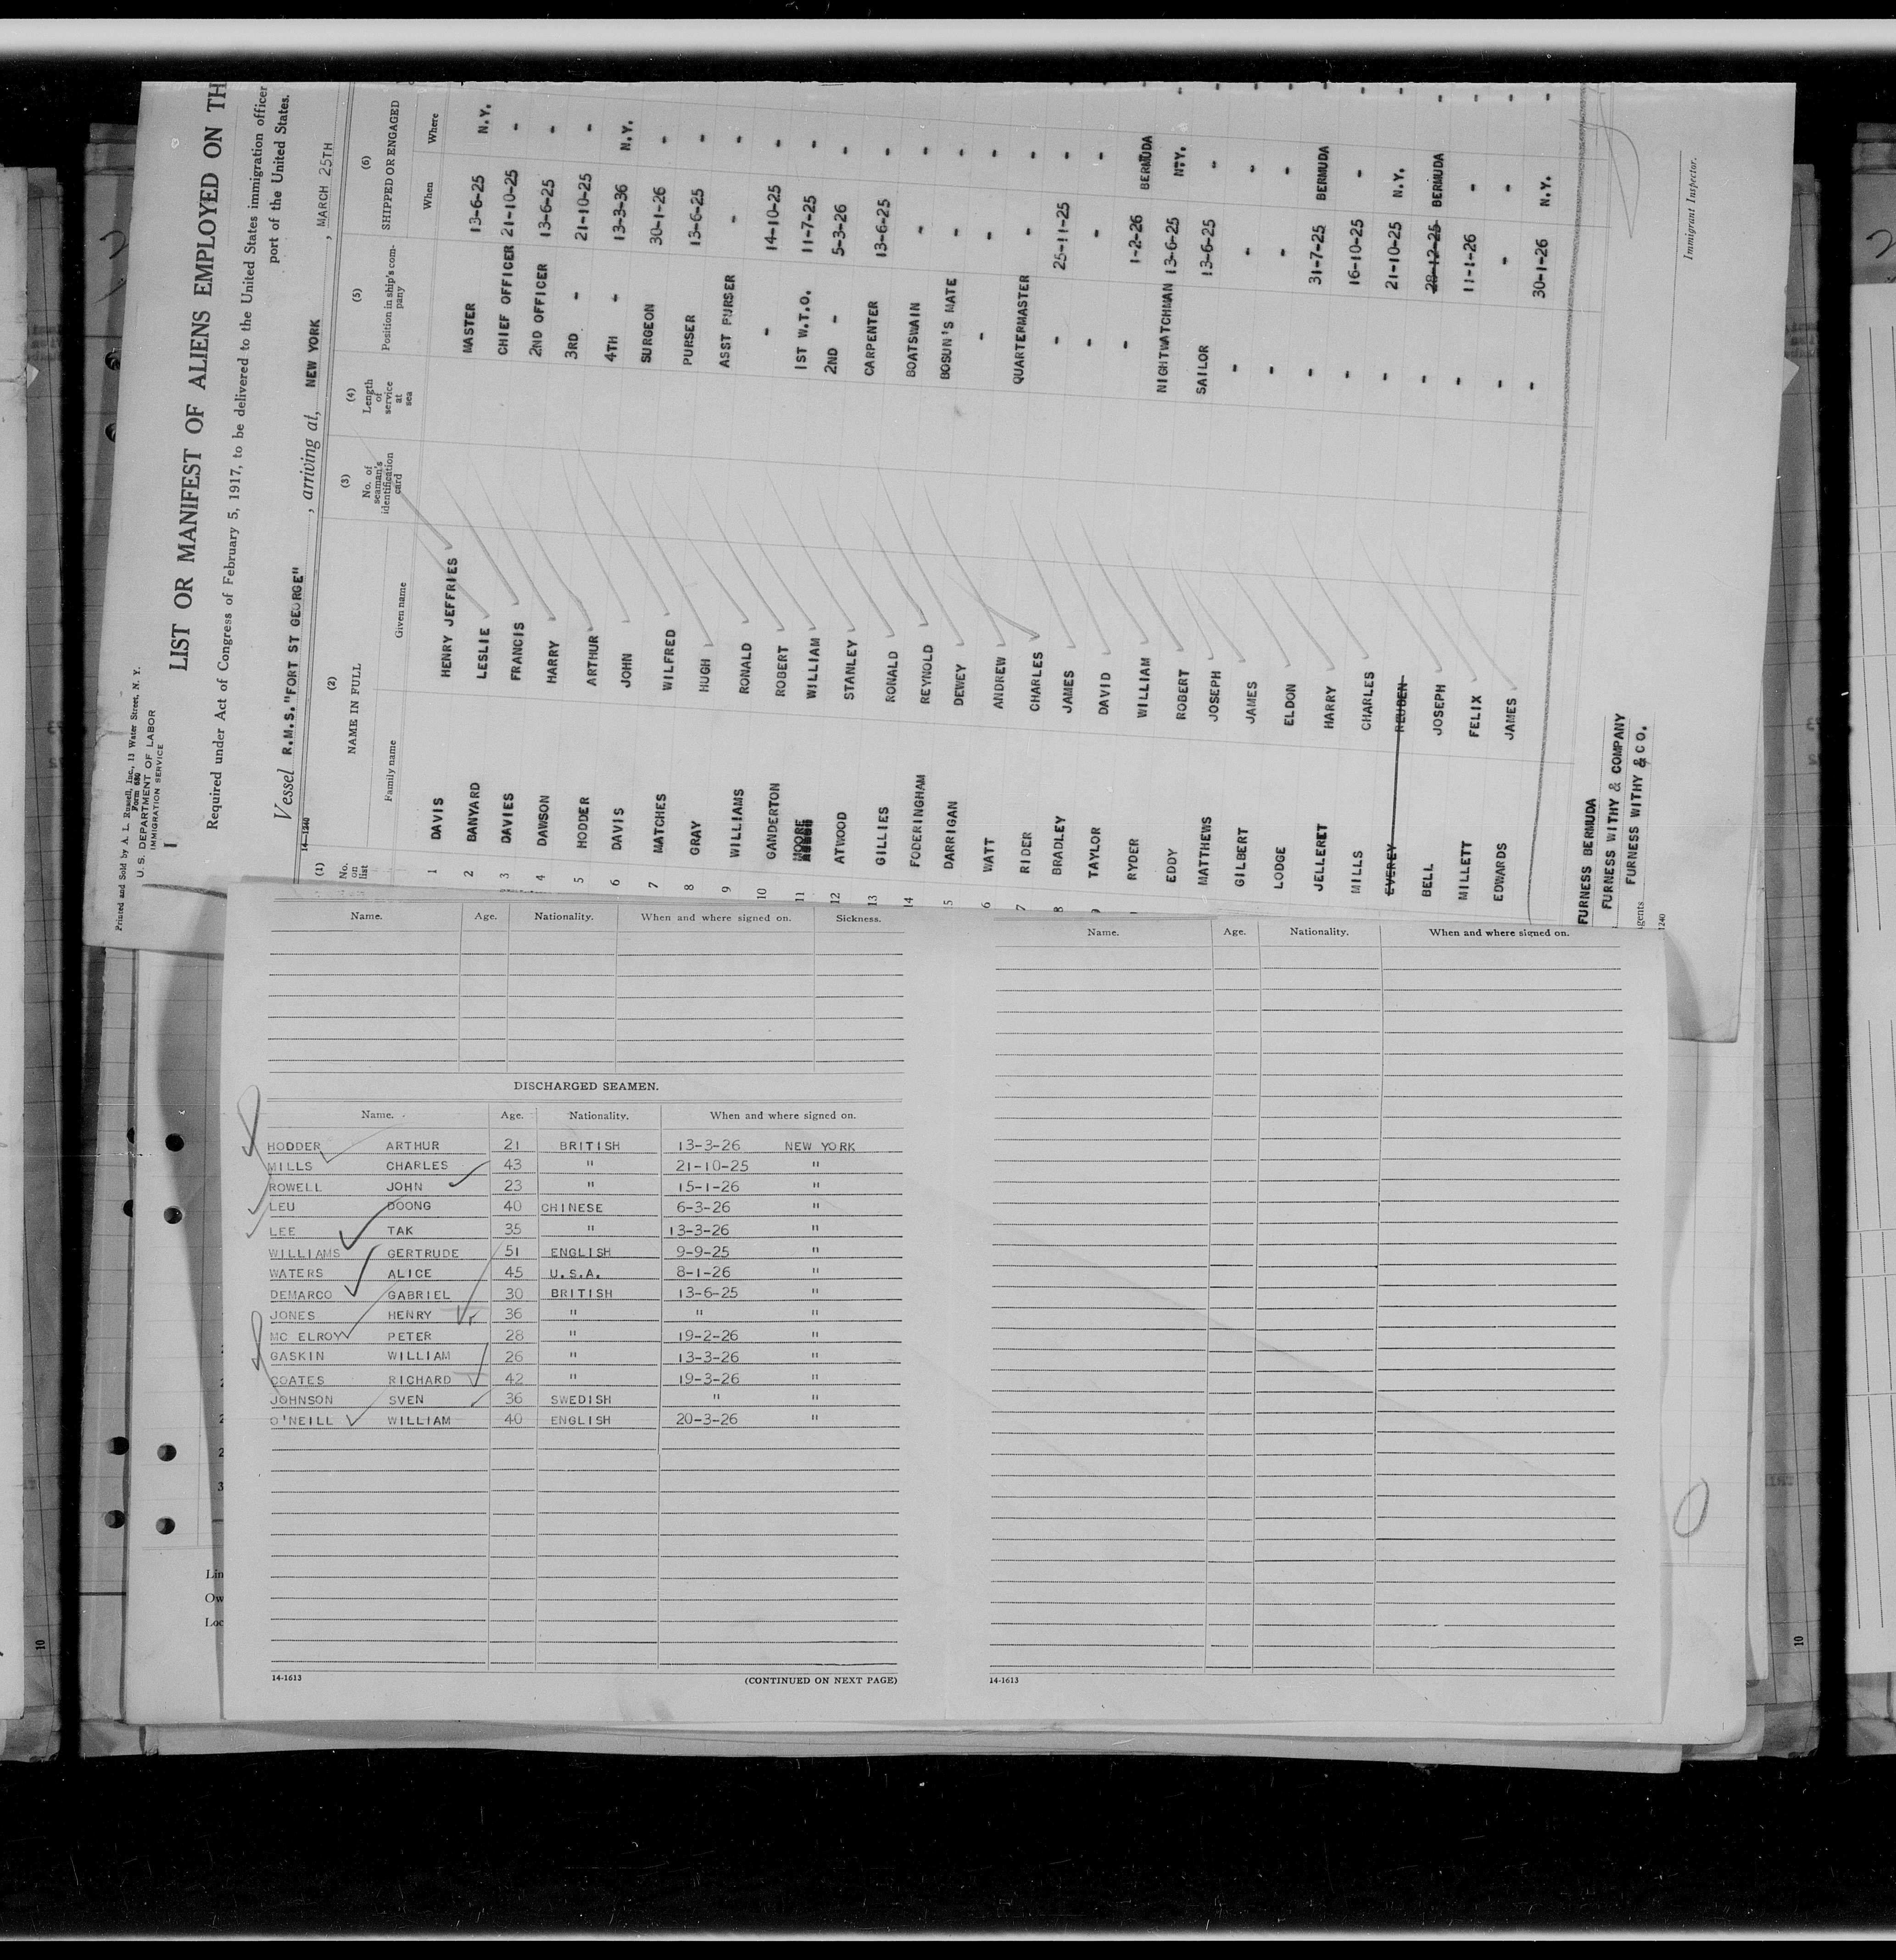 Printed and Sold by A. L. Russell, Inc., 13 Water Street, N. Y.
Form 680
U. S. DEPARTMENT OF LABOR
IMMIGRATION SERVICE
LIST OR MANIFEST OF ALIENS EMPLOYED ON TH
Required under Act of Congress of February 5, 1917, to be delivered to the United States immigration officer
port of the United States.
Vessel R.M.S."FORT ST GEORGE" , arriving at, NEW YORK , MARCH 25TH
14-1240
(1) (2) (3) (4) (5) (6)
No. on list NAME IN FULL No. of seaman's identification card Length of service at sea Position in ship's company SHIPPED OR ENGAGED
Family name Given name When Where
1 DAVIS HENRY JEFFRIES MASTER 13-6-25 N.Y.
2 BANYARD LESLIE CHIEF OFFICER 21-10-25 -
3 DAVIES FRANCIS 2ND OFFICER 13-6-25 -
4 DAWSON HARRY 3RD - 21-10-25 -
5 HODDER ARTHUR 4TH - 13-3-36 N.Y.
6 DAVIS JOHN SURGEON 30-1-26 -
7 MATCHES WILFRED PURSER 13-6-25 -
8 GRAY HUGH ASST PURSER - -
9 WILLIAMS RONALD - 14-10-25 -
10 GANDERTON ROBERT 1ST W.T.O. 11-7-25 -
11 MOORE WILLIAM 2ND - 5-3-26 -
12 ATWOOD STANLEY CARPENTER 13-6-25 -
13 GILLIES RONALD BOATSWAIN - -
14 FODERINGHAM REYNOLD BOSUN'S MATE - -
5 DARRIGAN DEWEY - - -
6 WATT ANDREW QUARTERMASTER - -
7 RIDER CHARLES - 25-11-25 -
8 BRADLEY JAMES - - -
9 TAYLOR DAVID - 1-2-26 BERMUDA
RYDER WILLIAM NIGHTWATCHMAN 13-6-25 N.Y.
EDDY ROBERT SAILOR 13-6-25 -
MATTHEWS JOSEPH - - -
GILBERT JAMES - - -
LODGE ELDON - 31-7-25 BERMUDA
JELLERET HARRY - 16-10-25 -
MILLS CHARLES - 21-10-25 N.Y.
EVEREY REUBEN - 28-12-25 BERMUDA
BELL JOSEPH - 11-1-26 -
MILLETT FELIX - - -
EDWARDS JAMES - 30-1-26 N.Y.
FURNESS BERMUDA
FURNESS WITHY & COMPANY
FURNESS WITHY & CO.
gents
1240
Immigrant Inspector.
Name. Age. Nationality. When and where signed on. Sickness.
DISCHARGED SEAMEN.
Name. Age. Nationality. When and where signed on.
HODDER ARTHUR 21 BRITISH 13-3-26 NEW YORK
MILLS CHARLES 43 " 21-10-25 "
ROWELL JOHN 23 " 15-1-26 "
LEU DOONG 40 CHINESE 6-3-26 "
LEE TAK 35 " 13-3-26 "
WILLIAMS GERTRUDE 51 ENGLISH 9-9-25 "
WATERS ALICE 45 U.S.A. 8-1-26 "
DEMARCO GABRIEL 30 BRITISH 13-6-25 "
JONES HENRY 36 " " "
MC ELROY PETER 28 " 19-2-26 "
GASKIN WILLIAM 26 " 13-3-26 "
COATES RICHARD 42 " 19-3-26 "
JOHNSON SVEN 36 SWEDISH " "
O'NEILL WILLIAM 40 ENGLISH 20-3-26 "
14-1613 (CONTINUED ON NEXT PAGE)
Name. Age. Nationality. When and where signed on.
14-1613
Lin
Ow
Loc
10
10